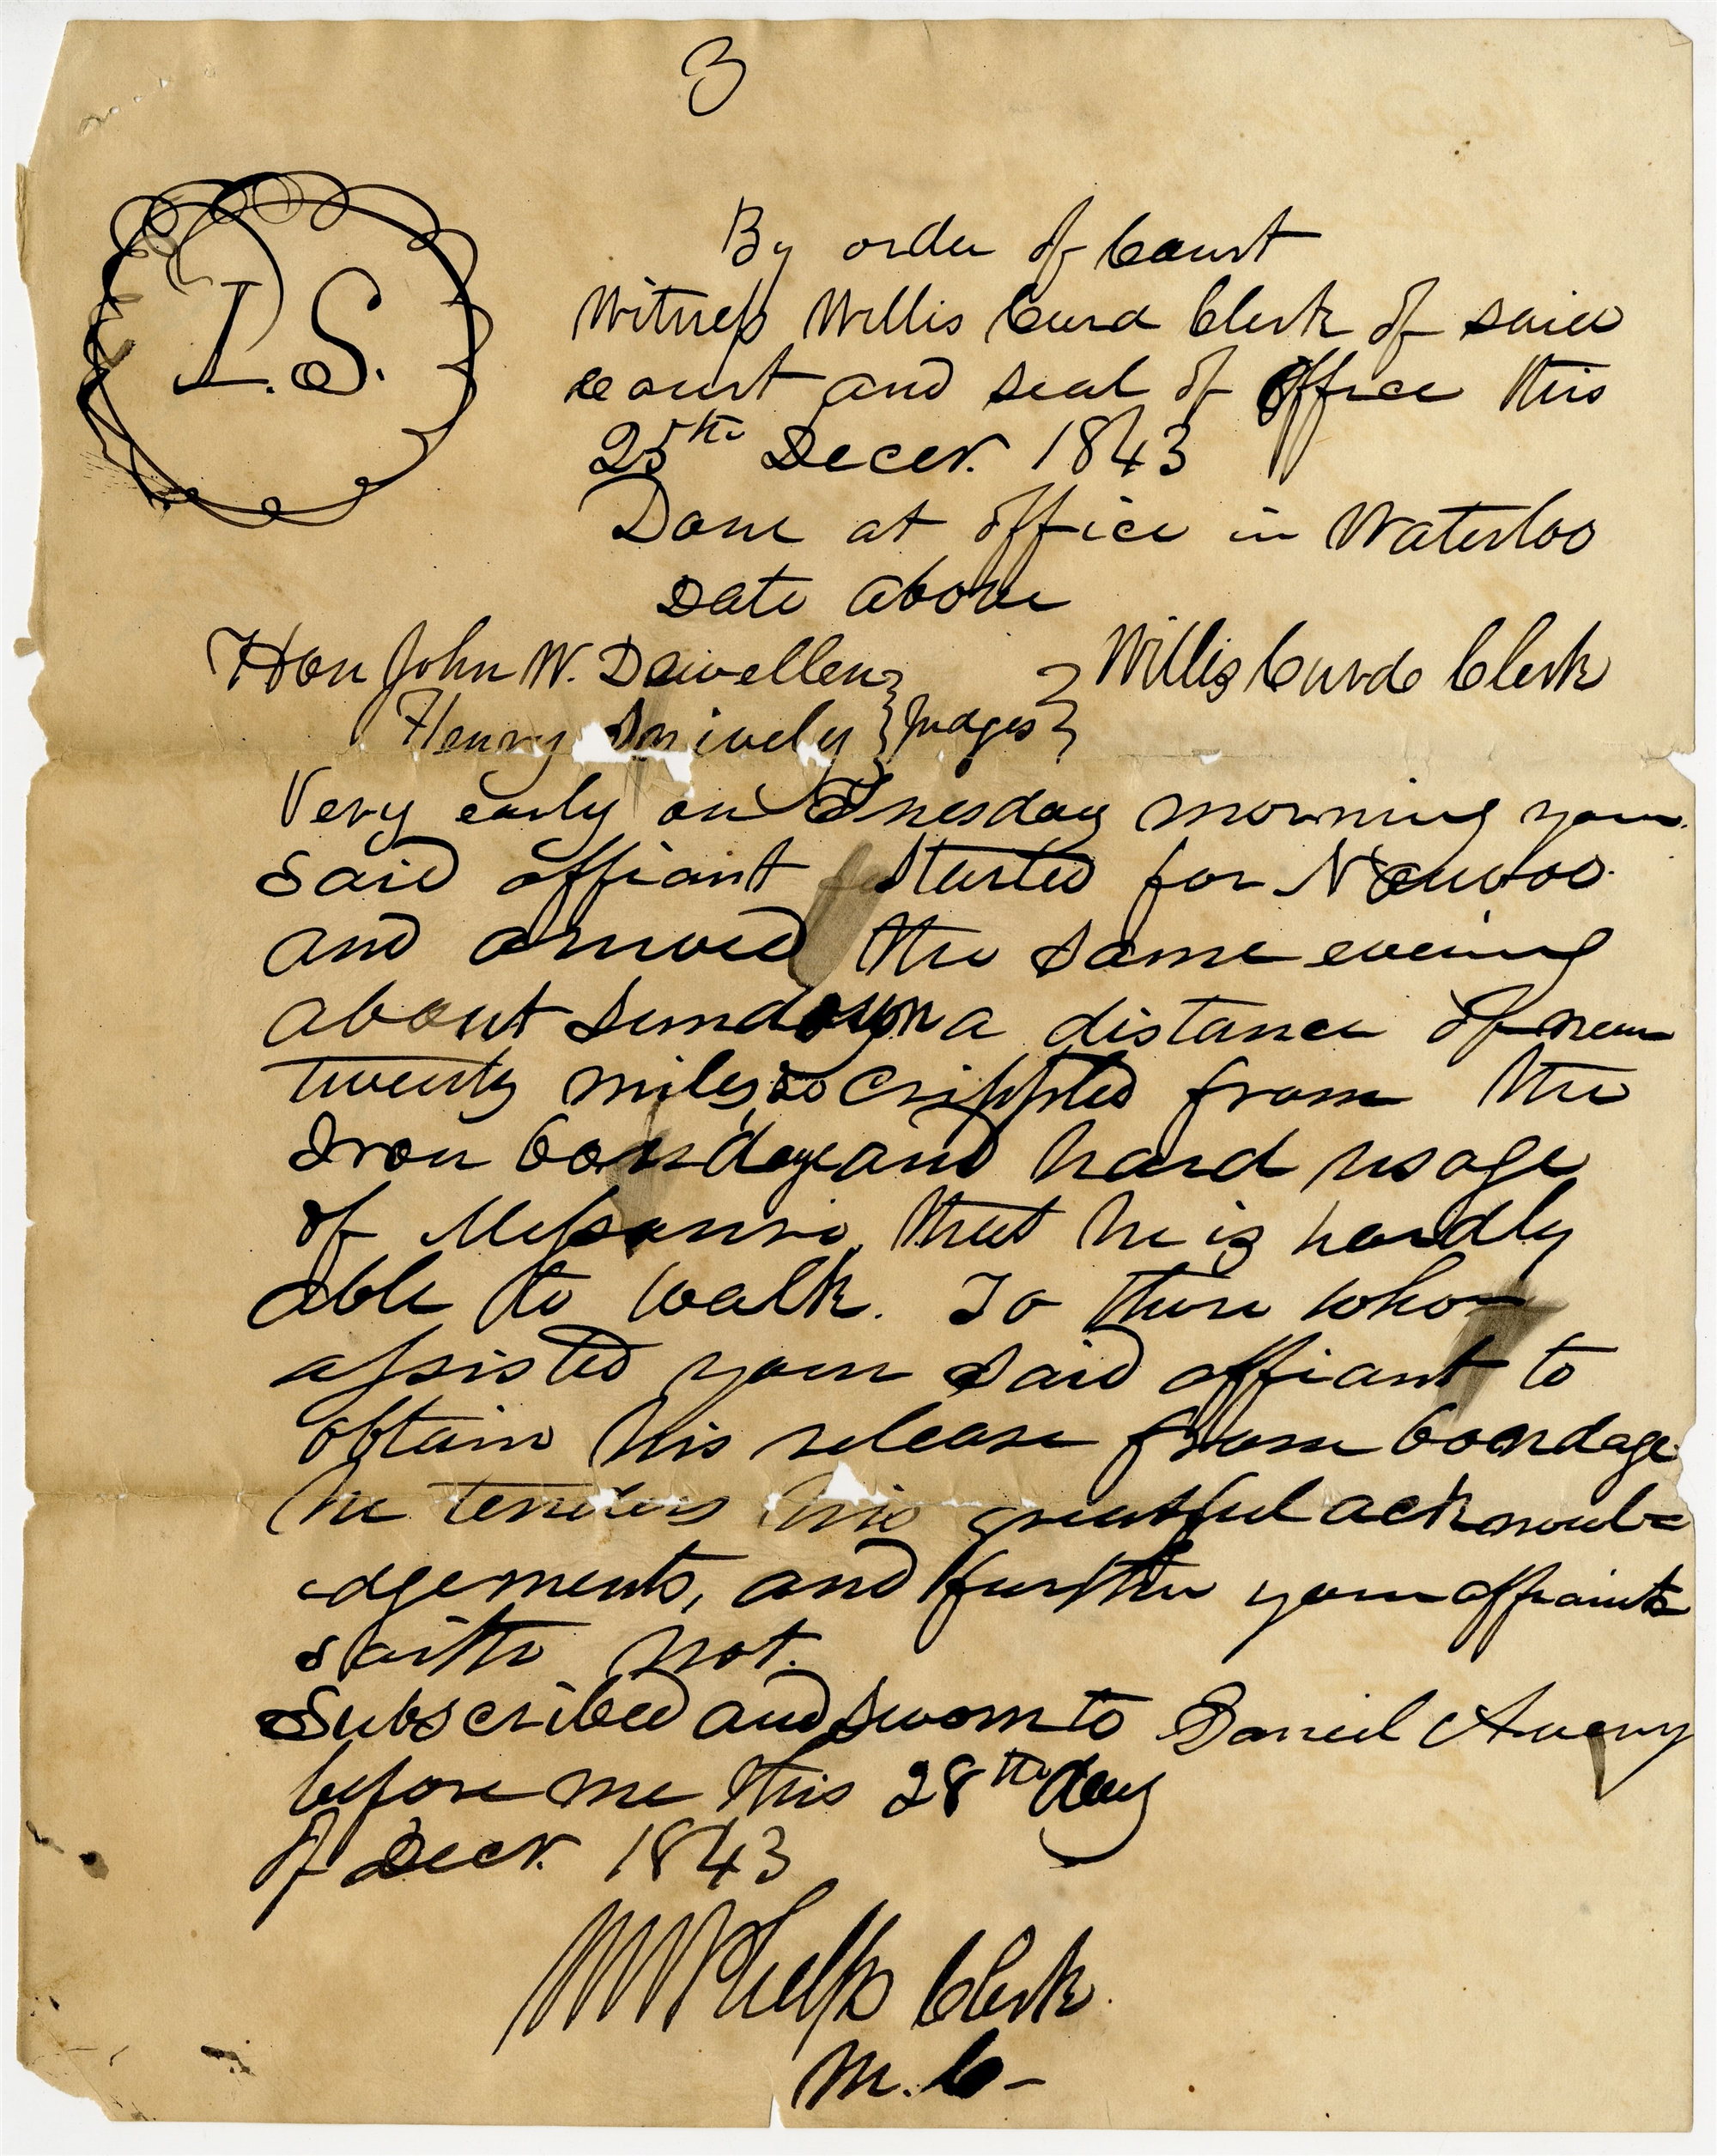 3
By order of Court
L.S.
Witness Willis Curd Clerk of said
court and seal of office this
25th Decer. 1843
Done at office in Waterloo
Date above
Hon John W. Dewellen } } Willis Curd Clerk
Henry Snively } Judges }
Very early on Tuesday morning your
said affiant started for Nauvoo
and arrived the same evening
about sundown a distance of near
twenty miles, so crippled from the
Iron bondage and hard usage
of Missouri, that he is hardly
able to walk. To those who
assisted your said affiant to
obtain his release from bondage
he tenders his greatful acknowl=
edgements, and further your affiants
saith not.
Subscribed and sworn to Daniel Avery
before me this 28th day
of Decr. 1843
W W Phelps Clerk
M. C-